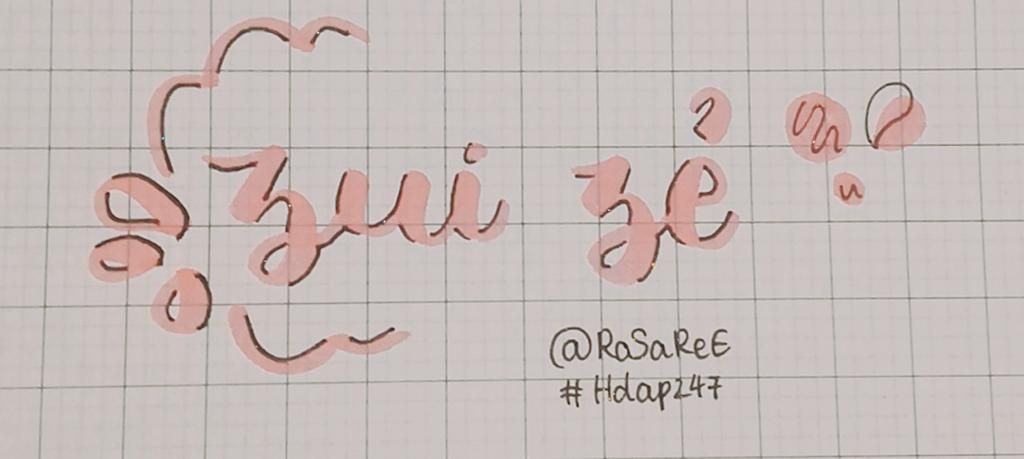 zui zẻ
@RaSaReE
#Hdap247